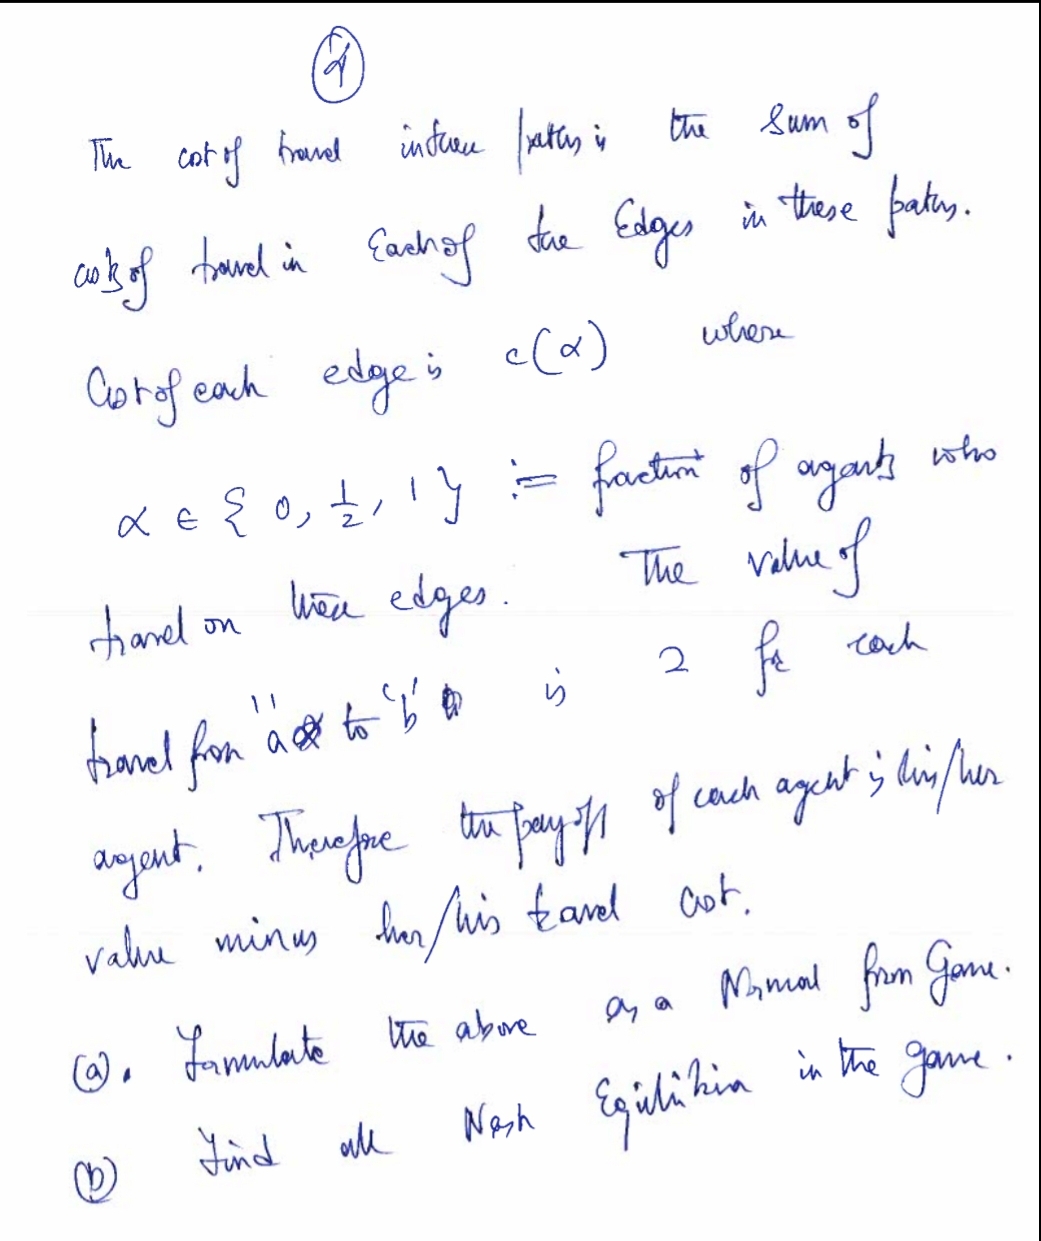 4
The cost of travel in these paths is the sum of
costs of travel in Each of the Edges in these paths.
Cost of each edge is c(α) where
α ∈ { 0, 1/2, 1 } := fraction of agents who
travel on these edges. The value of
travel from "a" to 'b' is 2 for each
agent. Therefore the payoff of each agent is his/her
value minus her/his travel cost.
(a). Formulate the above as a Normal form Game.
(b) Find all Nash Equilibria in the game.